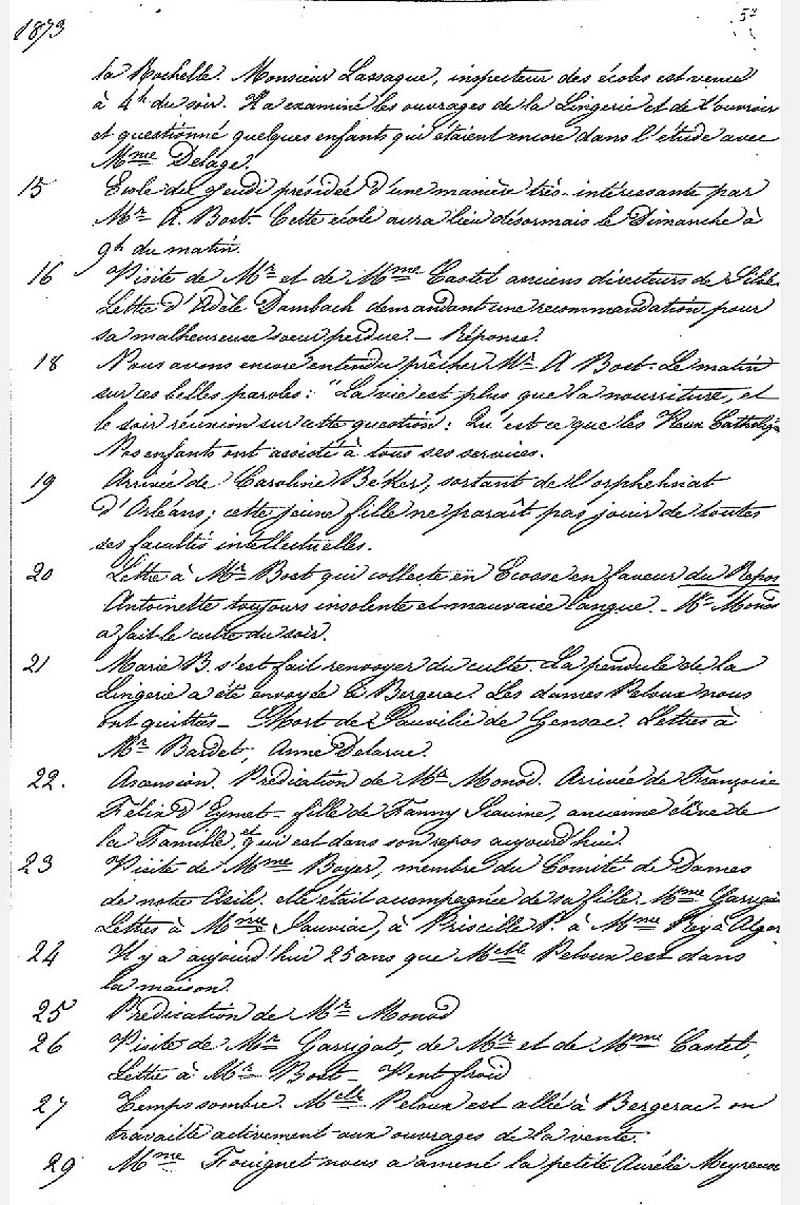 1873
52
la Rochelle. Monsieur Lassague, inspecteur des écoles est venu
à 4h du soir. Il a examiné les ouvrages de la Lingerie et de l'ouvroir
et questionné quelques enfants qui étaient encore dans l'étude avec
Mme Delage.
15 Ecole du jeudi présidée d'une manière très-intéressante par
Mr A. Bost. Cette école aura lieu désormais le Dimanche à
9h du matin.
16 Visite de Mr et de Mme Castel anciens directeurs de
Lettre d'Adèle Dambach demandant une recommandation pour
sa malheureuse soeur perdue. – Réponse.
18 Nous avons encore entendu prêcher Mr A Bost. Le matin
sur ces belles paroles: "La vie est plus que la nourriture, et
le soir réunion sur cette question: Qu'est ce que les Vieux Catholiq
Nos enfants ont assisté à tous ses services.
19 Arrivée de Caroline Béker, sortant de l'orphelinat
d'Orléans; cette jeune fille ne paraît pas jouir de toutes
ses facultés intellectuelles.
20 Lettre à Mr Bost qui collecte en Ecosse en faveur du Repos
Antoinette toujours insolente et mauvaise langue. – Mr Monod
a fait le culte du soir.
21 Marie B. s'est fait renvoyer du culte. La pendule de la
Lingerie a été envoyée à Bergerac. Les dames Peloux nous
ont quittés – Mort de de Gensac. Lettres à
Mr Bardet, Anne Delarue.
22. Ascension. Prédication de Mr Monod. Arrivée de Françoise
Félix d'Eymet – fille de Fanny, ancienne élève de
la Famille, et qui est dans son repos aujourd'hui.
23 Visite de Mme Boyer, membre du Comité de Dames
de notre Asile. elle était accompagnée de sa fille. Mme Garrig
Lettres à Mme Sauviac, à Priscille P. à Mme Rey à Alger
24 Il y a aujourd'hui 25 ans que Melle Peloux est dans
la maison.
25 Prédication de Mr Monod
26 Visite de Mr Garrigat, de Mr et de Mme Castel,
Lettre à Mr Bost – Vent froid
27 Temps sombre. Melle Peloux est allée à Bergerac – on
travaille activement aux ouvrages de la vente.
29 Mme Fouignet nous a amené la petite Aurélie